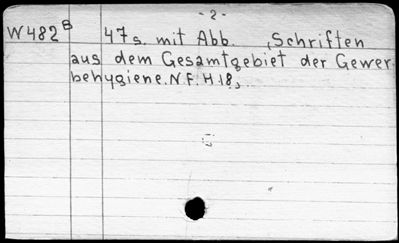 - 2 -
W482B 47 s. mit Abb. , Schriften
aus dem Gesamtgebiet der Gewer-
behygiene. N.F. H.18,